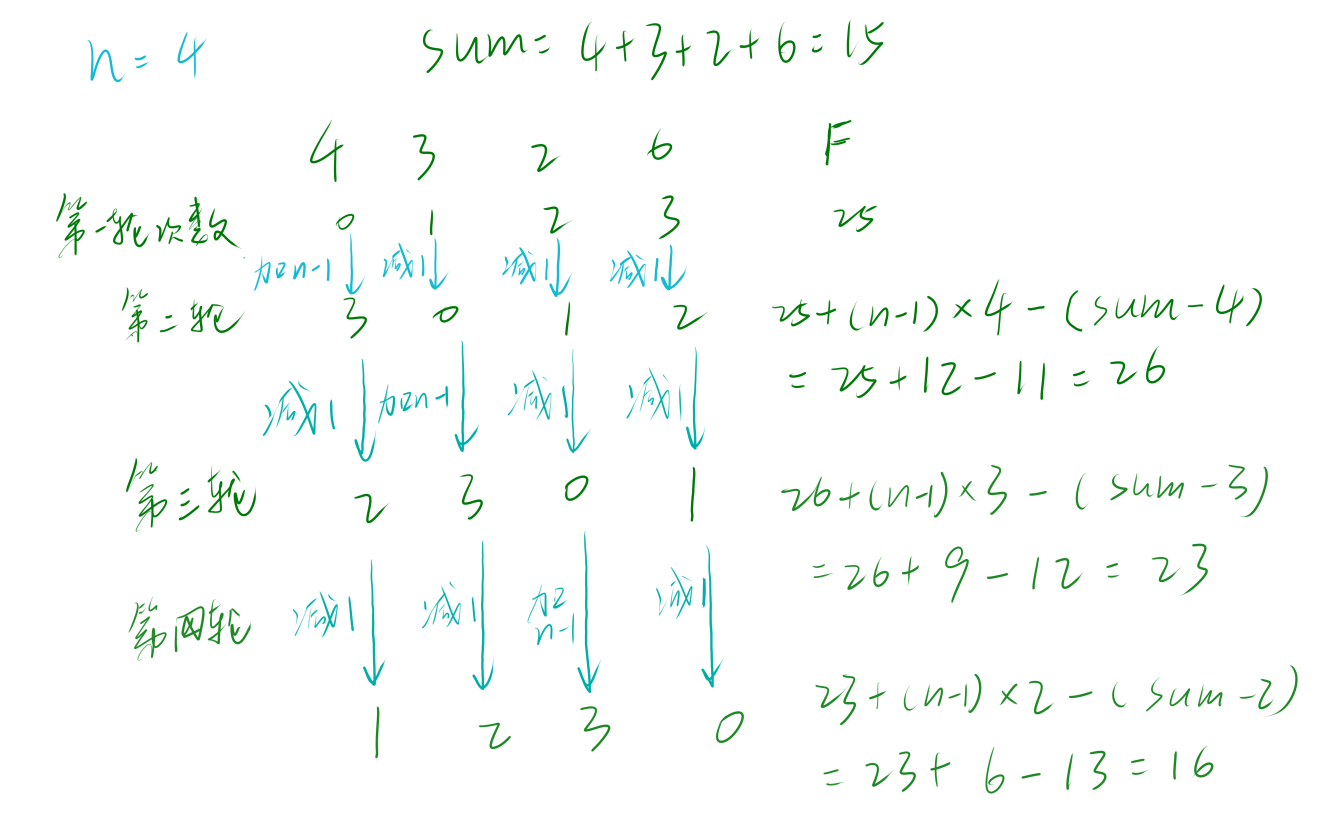 n = 4
sum = 4+3+2+6 = 15
4 3 2 6 F
第一轮次数 0 1 2 3 25
加n-1 减1 减1 减1
第二轮 3 0 1 2 25+(n-1)×4-(sum-4)
= 25+12-11 = 26
减1 加n-1 减1 减1
第三轮 2 3 0 1 26+(n-1)×3-(sum-3)
= 26+9-12 = 23
第四轮 减1 减1 加n-1 减1
1 2 3 0 23+(n-1)×2-(sum-2)
= 23+6-13 = 16